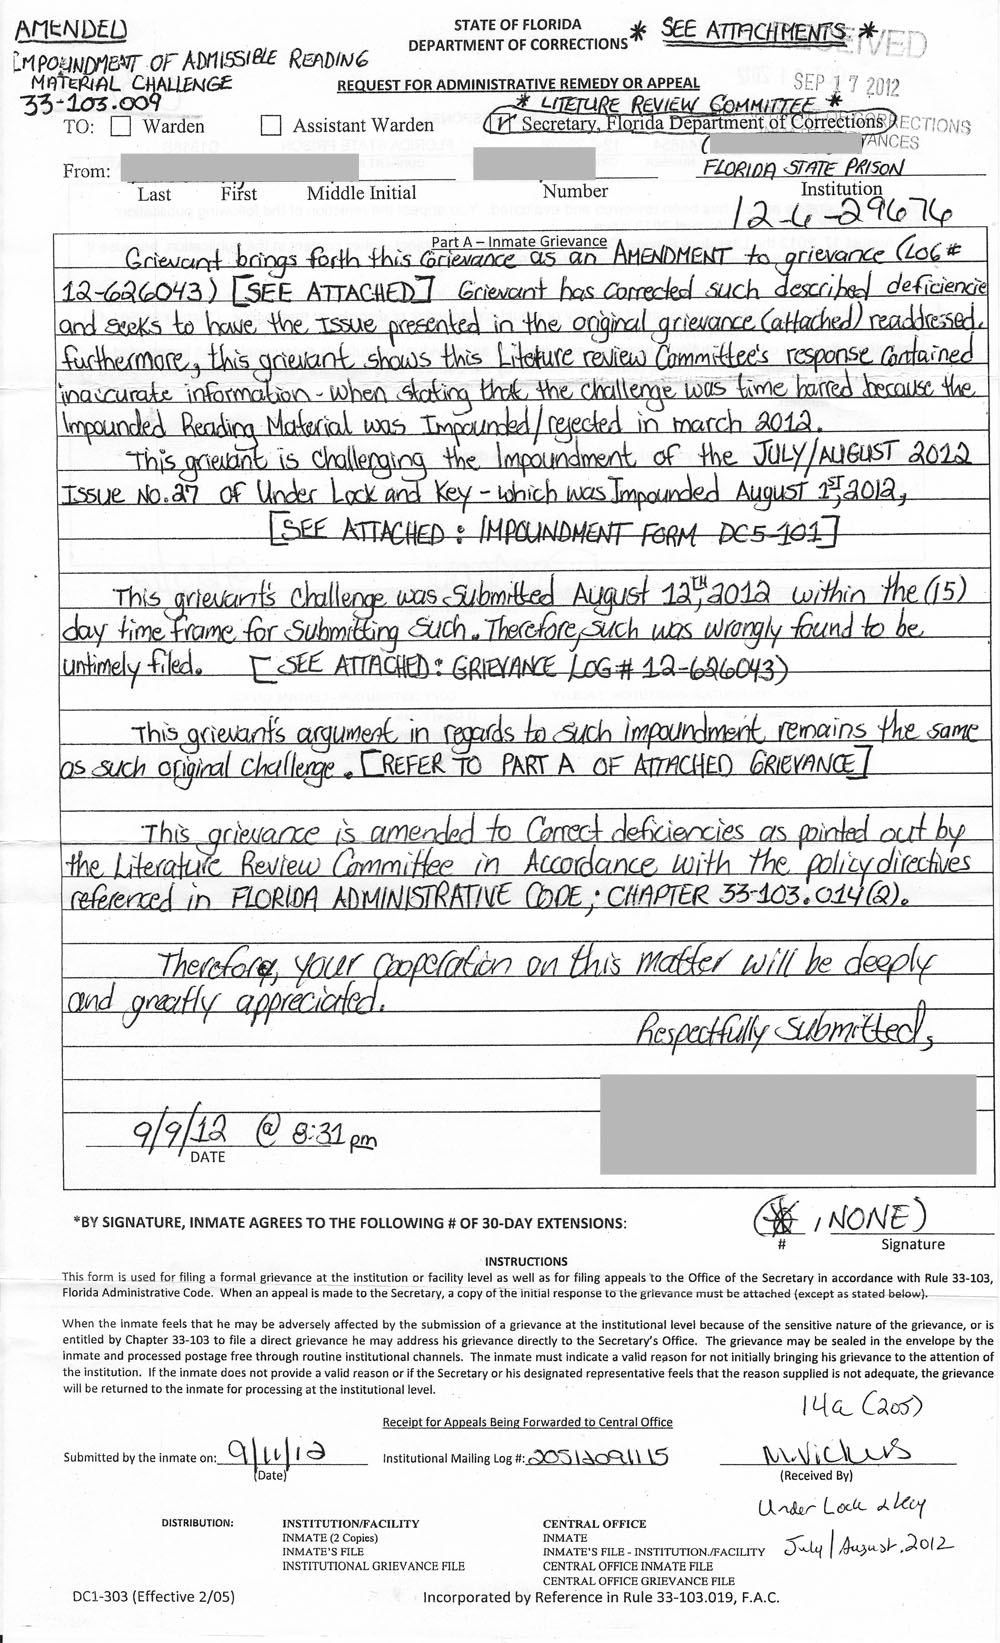 AMENDED
IMPOUNDMENT OF ADMISSIBLE READING
MATERIAL CHALLENGE
33-103.009
STATE OF FLORIDA
DEPARTMENT OF CORRECTIONS
* SEE ATTACHMENTS *
REQUEST FOR ADMINISTRATIVE REMEDY OR APPEAL
SEP 17 2012
* LITETURE REVIEW COMMITTEE *
TO: Warden Assistant Warden Secretary, Florida Department of Corrections
From:
FLORIDA STATE PRISON
Last First Middle Initial Number Institution
12-6-29676
Part A – Inmate Grievance
Grievant brings forth this Grievance as an AMENDMENT to grievance (LOG#
12-626043) [SEE ATTACHED] Grievant has corrected such described deficiencie
and seeks to have the Issue presented in the original grievance (attached) readdressed.
furthermore, this grievant shows this Liteture review Committee's response Contained
inaccurate information - when stating that the challenge was time barred because the
Impounded Reading Material was Impounded/rejected in march 2012.
This grievant is challenging the Impoundment of the JULY/AUGUST 2012
Issue No.27 of Under Lock and Key - which was Impounded August 1ST, 2012,
[SEE ATTACHED: IMPOUNDMENT FORM DC5-101]
This grievant's Challenge was Submitted August 12TH, 2012 within the (15)
day time frame for Submitting Such. Therefore, such was wrongly found to be
untimely filed. [SEE ATTACHED: GRIEVANCE LOG# 12-626043)
This grievant's argument in regards to such impoundment remains the same
as such original Challenge. [REFER TO PART A OF ATTACHED GRIEVANCE]
This grievance is amended to Correct deficiencies as pointed out by
the Literature Review Committee in Accordance with the policy directives
referenced in FLORIDA ADMINISTRATIVE CODE; CHAPTER 33-103.014(2).
Therefore, your cooperation on this matter will be deeply
and greatly appreciated.
Respectfully Submitted,
9/9/12 @ 8:31 pm
DATE
*BY SIGNATURE, INMATE AGREES TO THE FOLLOWING # OF 30-DAY EXTENSIONS:
, NONE)
# Signature
INSTRUCTIONS
This form is used for filing a formal grievance at the institution or facility level as well as for filing appeals to the Office of the Secretary in accordance with Rule 33-103,
Florida Administrative Code. When an appeal is made to the Secretary, a copy of the initial response to the grievance must be attached (except as stated below).
When the inmate feels that he may be adversely affected by the submission of a grievance at the institutional level because of the sensitive nature of the grievance, or is
entitled by Chapter 33-103 to file a direct grievance he may address his grievance directly to the Secretary's Office. The grievance may be sealed in the envelope by the
inmate and processed postage free through routine institutional channels. The inmate must indicate a valid reason for not initially bringing his grievance to the attention of
the institution. If the inmate does not provide a valid reason or if the Secretary or his designated representative feels that the reason supplied is not adequate, the grievance
will be returned to the inmate for processing at the institutional level.
14a (205)
Receipt for Appeals Being Forwarded to Central Office
Submitted by the inmate on: 9/11/12 Institutional Mailing Log #: 20512091115 M. Vickers
(Date) (Received By)
Under Lock & Key
July/August, 2012
DISTRIBUTION: INSTITUTION/FACILITY CENTRAL OFFICE
INMATE (2 Copies) INMATE
INMATE'S FILE INMATE'S FILE - INSTITUTION./FACILITY
INSTITUTIONAL GRIEVANCE FILE CENTRAL OFFICE INMATE FILE
CENTRAL OFFICE GRIEVANCE FILE
DC1-303 (Effective 2/05) Incorporated by Reference in Rule 33-103.019, F.A.C.